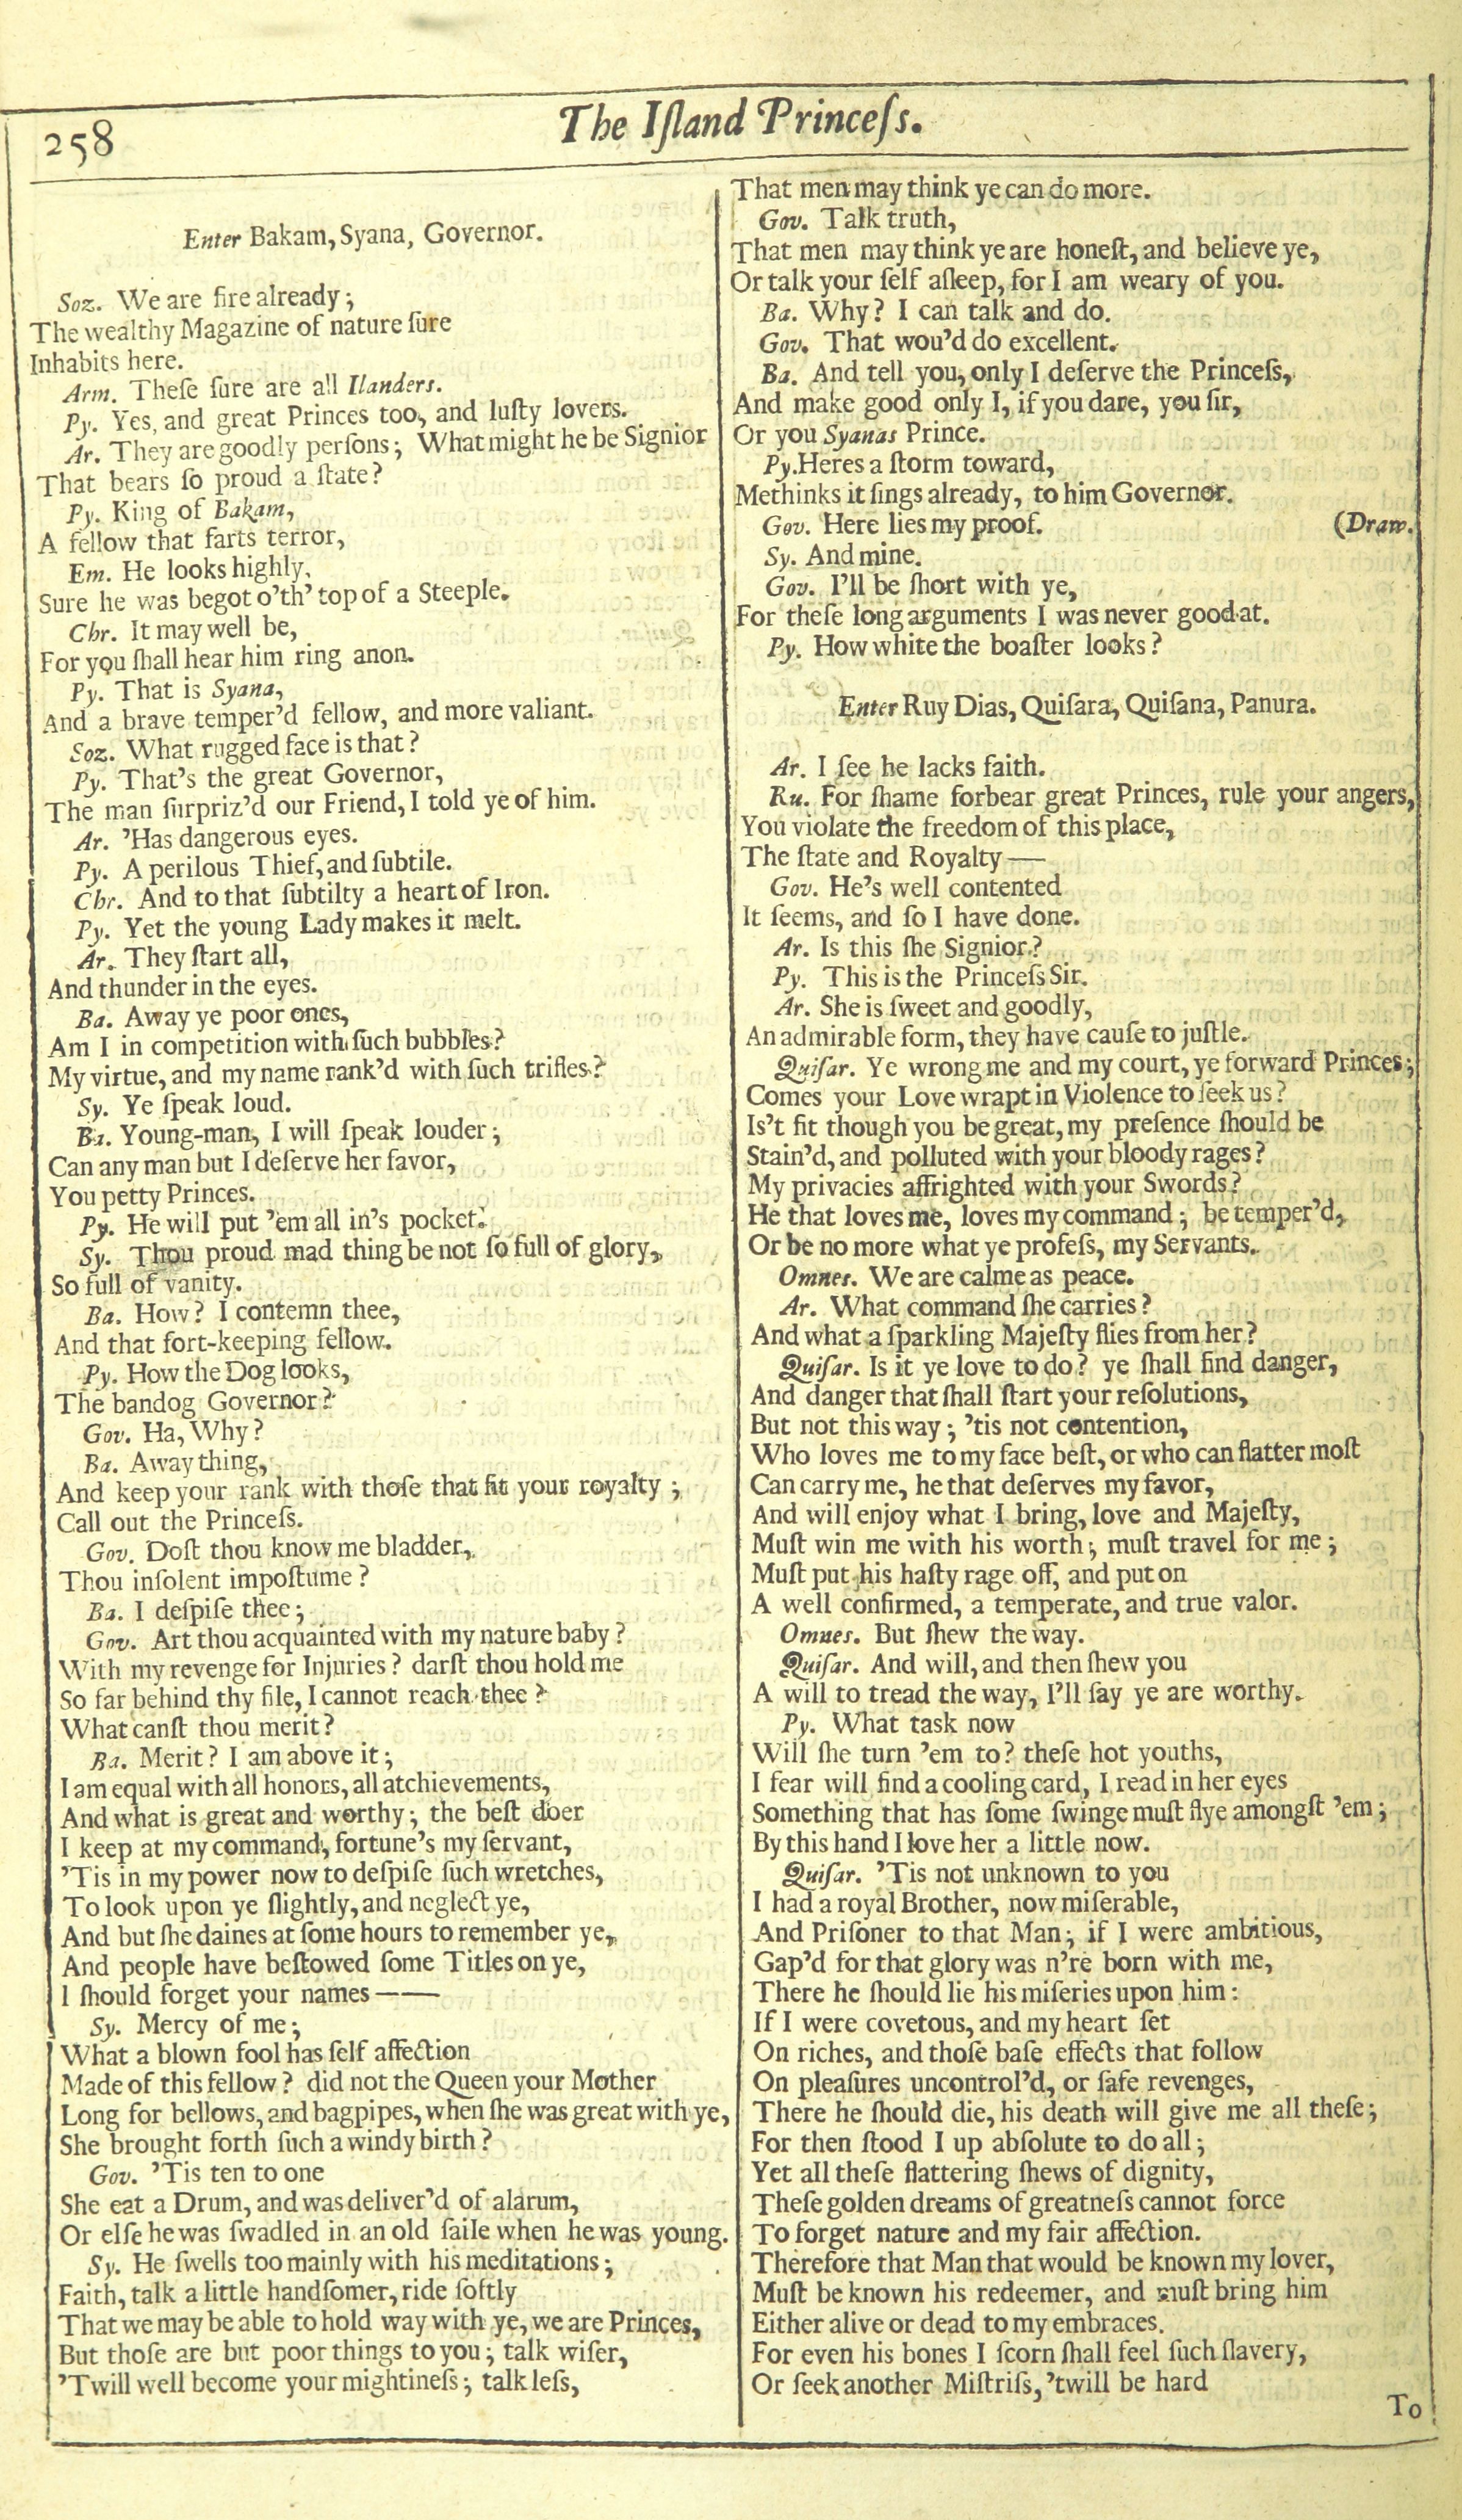 258
The Iſland Princeſs.
Enter Bakam, Syana, Governor.
Soz. We are fire already;
The wealthy Magazine of nature ſure
Inhabits here.
Arm. Theſe ſure are all Ilanders.
Py. Yes, and great Princes too, and luſty lovers.
Ar. They are goodly perſons; What might he be Signior
That bears ſo proud a ſtate?
Py. King of Bakam,
A fellow that farts terror,
Em. He looks highly,
Sure he was begot o'th' top of a Steeple.
Chr. It may well be,
For you ſhall hear him ring anon.
Py. That is Syana,
And a brave temper'd fellow, and more valiant.
Soz. What rugged face is that?
Py. That's the great Governor,
The man ſurpriz'd our Friend, I told ye of him.
Ar. 'Has dangerous eyes.
Py. A perilous Thief, and ſubtile.
Chr. And to that ſubtilty a heart of Iron.
Py. Yet the young Lady makes it melt.
Ar. They ſtart all,
And thunder in the eyes.
Ba. Away ye poor ones,
Am I in competition with ſuch bubbles?
My virtue, and my name rank'd with ſuch trifles?
Sy. Ye ſpeak loud.
Ba. Young-man, I will ſpeak louder;
Can any man but I deſerve her favor,
You petty Princes.
Py. He will put 'em all in's pocket.
Sy. Thou proud mad thing be not ſo full of glory,
So full of vanity.
Ba. How? I contemn thee,
And that fort-keeping fellow.
Py. How the Dog looks,
The bandog Governor?
Gov. Ha, Why?
Ba. Away thing,
And keep your rank with thoſe that fit your royalty;
Call out the Princeſs.
Gov. Doſt thou know me bladder,
Thou inſolent impoſtume?
Ba. I deſpiſe thee;
Gov. Art thou acquainted with my nature baby?
With my revenge for Injuries? darſt thou hold me
So far behind thy file, I cannot reach thee?
What canſt thou merit?
Ba. Merit? I am above it;
I am equal with all honors, all atchievements,
And what is great and worthy; the beſt doer
I keep at my command, fortune's my ſervant,
'Tis in my power now to deſpiſe ſuch wretches,
To look upon ye ſlightly, and neglect ye,
And but ſhe daines at ſome hours to remember ye,
And people have beſtowed ſome Titles on ye,
I ſhould forget your names——
Sy. Mercy of me;
What a blown fool has ſelf affection
Made of this fellow? did not the Queen your Mother
Long for bellows, and bagpipes, when ſhe was great with ye,
She brought forth ſuch a windy birth?
Gov. 'Tis ten to one
She eat a Drum, and was deliver'd of alarum,
Or elſe he was ſwadled in an old ſaile when he was young.
Sy. He ſwells too mainly with his meditations;
Faith, talk a little handſomer, ride ſoftly
That we may be able to hold way with ye, we are Princes,
But thoſe are but poor things to you; talk wiſer,
'Twill well become your mightineſs; talk leſs,
That men may think ye can do more.
Gov. Talk truth,
That men may think ye are honeſt, and believe ye,
Or talk your ſelf aſleep, for I am weary of you.
Ba. Why? I can talk and do.
Gov. That wou'd do excellent.
Ba. And tell you, only I deſerve the Princeſs,
And make good only I, if you dare, you ſir,
Or you Syanas Prince.
Py. Heres a ſtorm toward,
Methinks it ſings already, to him Governor.
Gov. Here lies my proof. (Draw.
Sy. And mine.
Gov. I'll be ſhort with ye,
For theſe long arguments I was never good at.
Py. How white the boaſter looks?
Enter Ruy Dias, Quiſara, Quiſana, Panura.
Ar. I ſee he lacks faith.
Ru. For ſhame forbear great Princes, rule your angers,
You violate the freedom of this place,
The ſtate and Royalty—
Gov. He's well contented
It ſeems, and ſo I have done.
Ar. Is this ſhe Signior?
Py. This is the Princeſs Sir.
Ar. She is ſweet and goodly,
An admirable form, they have cauſe to juſtle.
Quiſar. Ye wrong me and my court, ye forward Princes;
Comes your Love wrapt in Violence to ſeek us?
Is't fit though you be great, my preſence ſhould be
Stain'd, and polluted with your bloody rages?
My privacies affrighted with your Swords?
He that loves me, loves my command; be temper'd,
Or be no more what ye profeſs, my Servants.
Omnes. We are calme as peace.
Ar. What command ſhe carries?
And what a ſparkling Majeſty flies from her?
Quiſar. Is it ye love to do? ye ſhall find danger,
And danger that ſhall ſtart your reſolutions,
But not this way; 'tis not contention,
Who loves me to my face beſt, or who can flatter moſt
Can carry me, he that deſerves my favor,
And will enjoy what I bring, love and Majeſty,
Muſt win me with his worth; muſt travel for me;
Muſt put his haſty rage off, and put on
A well confirmed, a temperate, and true valor.
Omnes. But ſhew the way.
Quiſar. And will, and then ſhew you
A will to tread the way, I'll ſay ye are worthy.
Py. What task now
Will ſhe turn 'em to? theſe hot youths,
I fear will find a cooling card, I read in her eyes
Something that has ſome ſwinge muſt flye amongſt 'em;
By this hand I love her a little now.
Quiſar. 'Tis not unknown to you
I had a royal Brother, now miſerable,
And Priſoner to that Man; if I were ambitious,
Gap'd for that glory was n're born with me,
There he ſhould lie his miſeries upon him:
If I were covetous, and my heart ſet
On riches, and thoſe baſe effects that follow
On pleaſures uncontrol'd, or ſafe revenges,
There he ſhould die, his death will give me all theſe;
For then ſtood I up abſolute to do all;
Yet all theſe flattering ſhews of dignity,
Theſe golden dreams of greatneſs cannot force
To forget nature and my fair affection.
Therefore that Man that would be known my lover,
Muſt be known his redeemer, and muſt bring him
Either alive or dead to my embraces.
For even his bones I ſcorn ſhall feel ſuch ſlavery,
Or ſeek another Miſtriſs, 'twill be hard
To